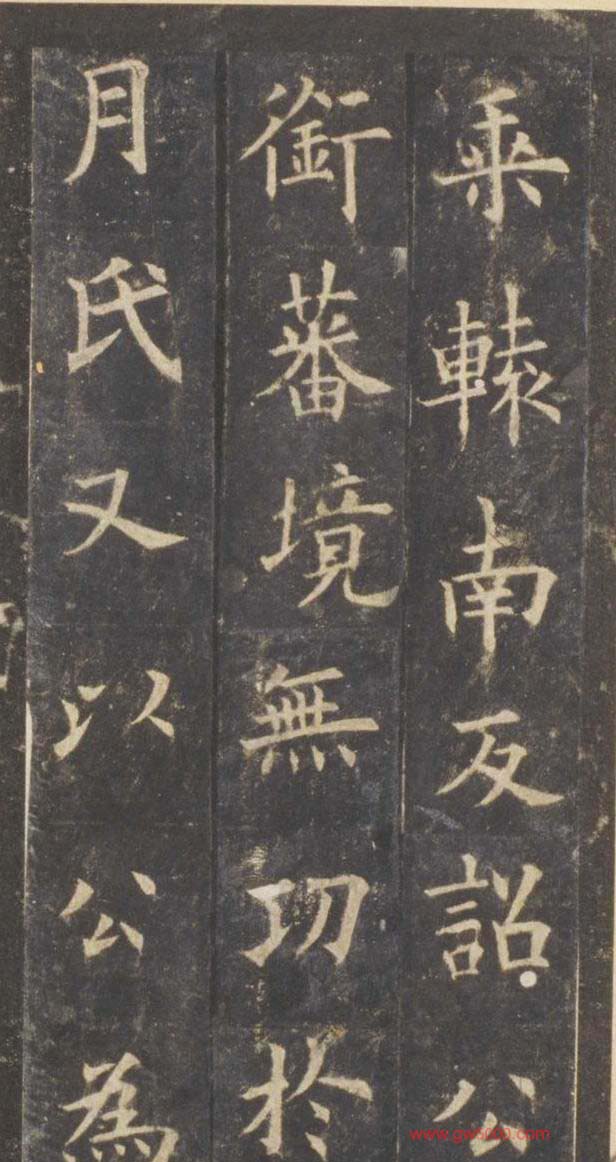 乘轅南反詔公
銜蕃境無功於
月氏又以公為
www.gw5000.com